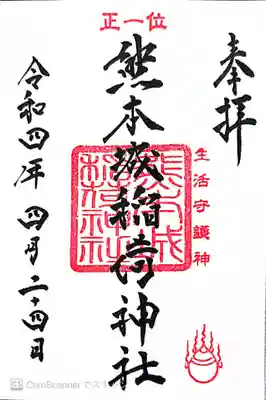 正一位
奉拝
生活守護神
熊本城稲荷神社
熊本城稲荷神社
令和四年 四月二十四日
CamScanner でス